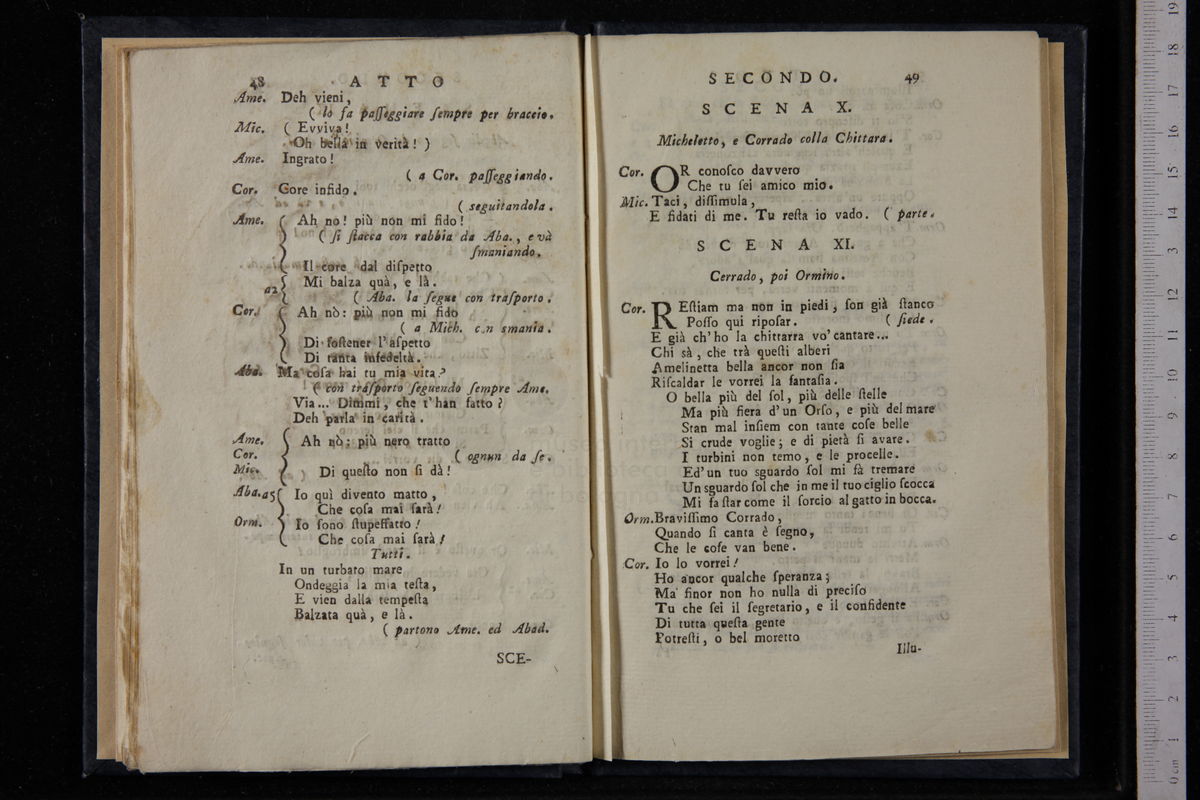 48 ATTO
Ame. Deh vieni,
( lo fa paſſeggiare ſempre per braccio.
Mic. ( Evviva!
Oh bella in verità! )
Ame. Ingrato!
( a Cor. paſſeggiando.
Cor. Core infido.
( ſeguitandola.
Ame. Ah nò! più non mi fido!
( ſi ſtacca con rabbia da Aba., e và
ſmaniando.
Il core dal diſpetto
Mi balza quà, e là.
a2
( Aba. la ſegue con traſporto.
Cor. Ah nò: più non mi fido
( a Mich. con smania.
Di ſoſtener l'aſpetto
Di tanta infedeltà.
Aba. Ma coſa hai tu mia vita?
( con traſporto ſeguendo ſempre Ame.
Via... Dimmi, che t'han fatto?
Deh parla in carità.
Ame. Ah nò: più nero tratto
Cor. ( ognun da ſe.
Mic. Di queſto non ſi dà!
Aba. a5 Io quì divento matto,
Che coſa mai ſarà!
Orm. Io ſono ſtupeffatto!
Che coſa mai ſarà!
Tutti.
In un turbato mare
Ondeggia la mia teſta,
E vien dalla tempeſta
Balzata quà, e là.
( partono Ame. ed Abad.
SCE-
SECONDO. 49
SCENA X.
Micheletto, e Corrado colla Chittara.
Cor. OR conoſco davvero
Che tu ſei amico mio.
Mic. Taci, diſſimula,
E fidati di me. Tu reſta io vado. ( parte.
SCENA XI.
Cerrado, poi Ormino.
Cor. REſtiam ma non in piedi, ſon già ſtanco
Poſſo qui ripoſar. ( ſiede.
E già ch'ho la chittarra vo' cantare...
Chi sà, che trà queſti alberi
Amelinetta bella ancor non ſia
Riſcaldar le vorrei la fantaſia.
O bella più del ſol, più delle ſtelle
Ma più fiera d'un Orſo, e più del mare
Stan mal inſiem con tante coſe belle
Si crude voglie; e di pietà ſi avare.
I turbini non temo, e le procelle.
Ed'un tuo sguardo ſol mi fà tremare
Un sguardo ſol che in me il tuo ciglio ſcocca
Mi fa ſtar come il ſorcio al gatto in bocca.
Orm. Braviſſimo Corrado,
Quando ſi canta è ſegno,
Che le coſe van bene.
Cor. Io lo vorrei!
Ho ancor qualche ſperanza;
Ma finor non ho nulla di preciſo
Tu che ſei il ſegretario, e il confidente
Di tutta queſta gente
Potreſti, o bel moretto
Illu-